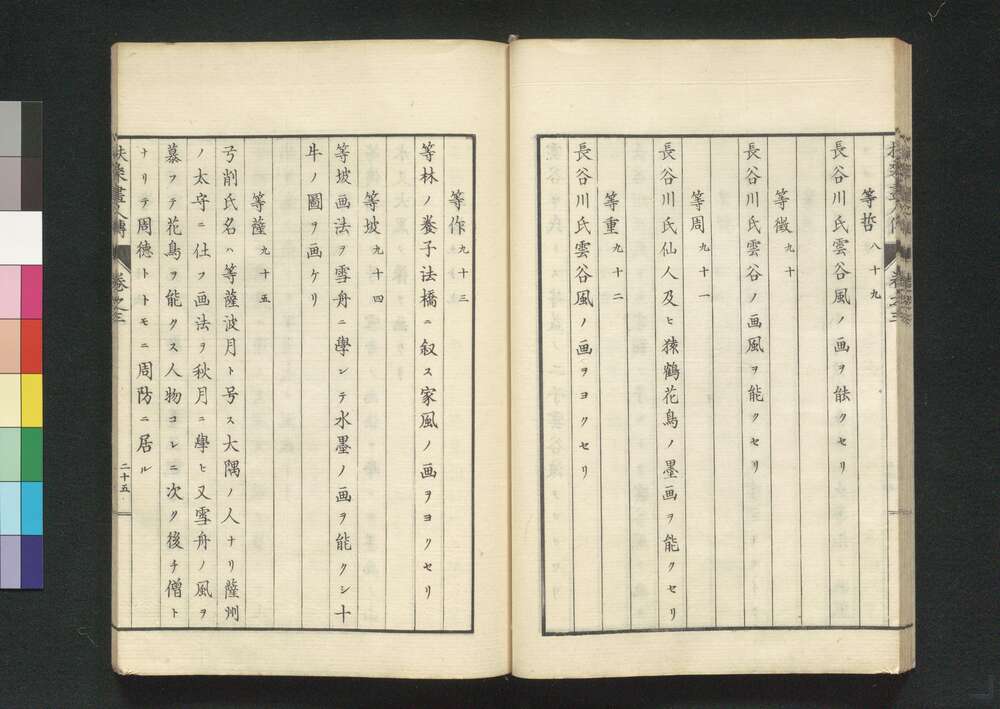 等哲 八十九
長谷川氏雲谷風ノ画ヲ能クセリ
等徴 九十
長谷川氏雲谷ノ画風ヲ能クセリ
等周 九十一
長谷川氏仙人及ヒ猿鶴花鳥ノ墨画ヲ能クセリ
等重 九十二
長谷川氏雲谷風ノ画ヲヨクセリ
等作 九十三
等林ノ養子法橋ニ叙ス家風ノ画ヲヨクセリ
等坡 九十四
等坡画法ヲ雪舟ニ學ンテ水墨ノ画ヲ能クシ十
牛ノ圖ヲ画ケリ
等薩 九十五
弓削氏名ハ等薩波月ト号ス大隅ノ人ナリ薩州
ノ太守ニ仕フ画法ヲ秋月ニ學ヒ又雪舟ノ風ヲ
慕フテ花鳥ヲ能クス人物コレニ次ク後チ僧ト
ナリテ周德トトモニ周防ニ居ル
扶桑畫人傳 巻之三
二十五